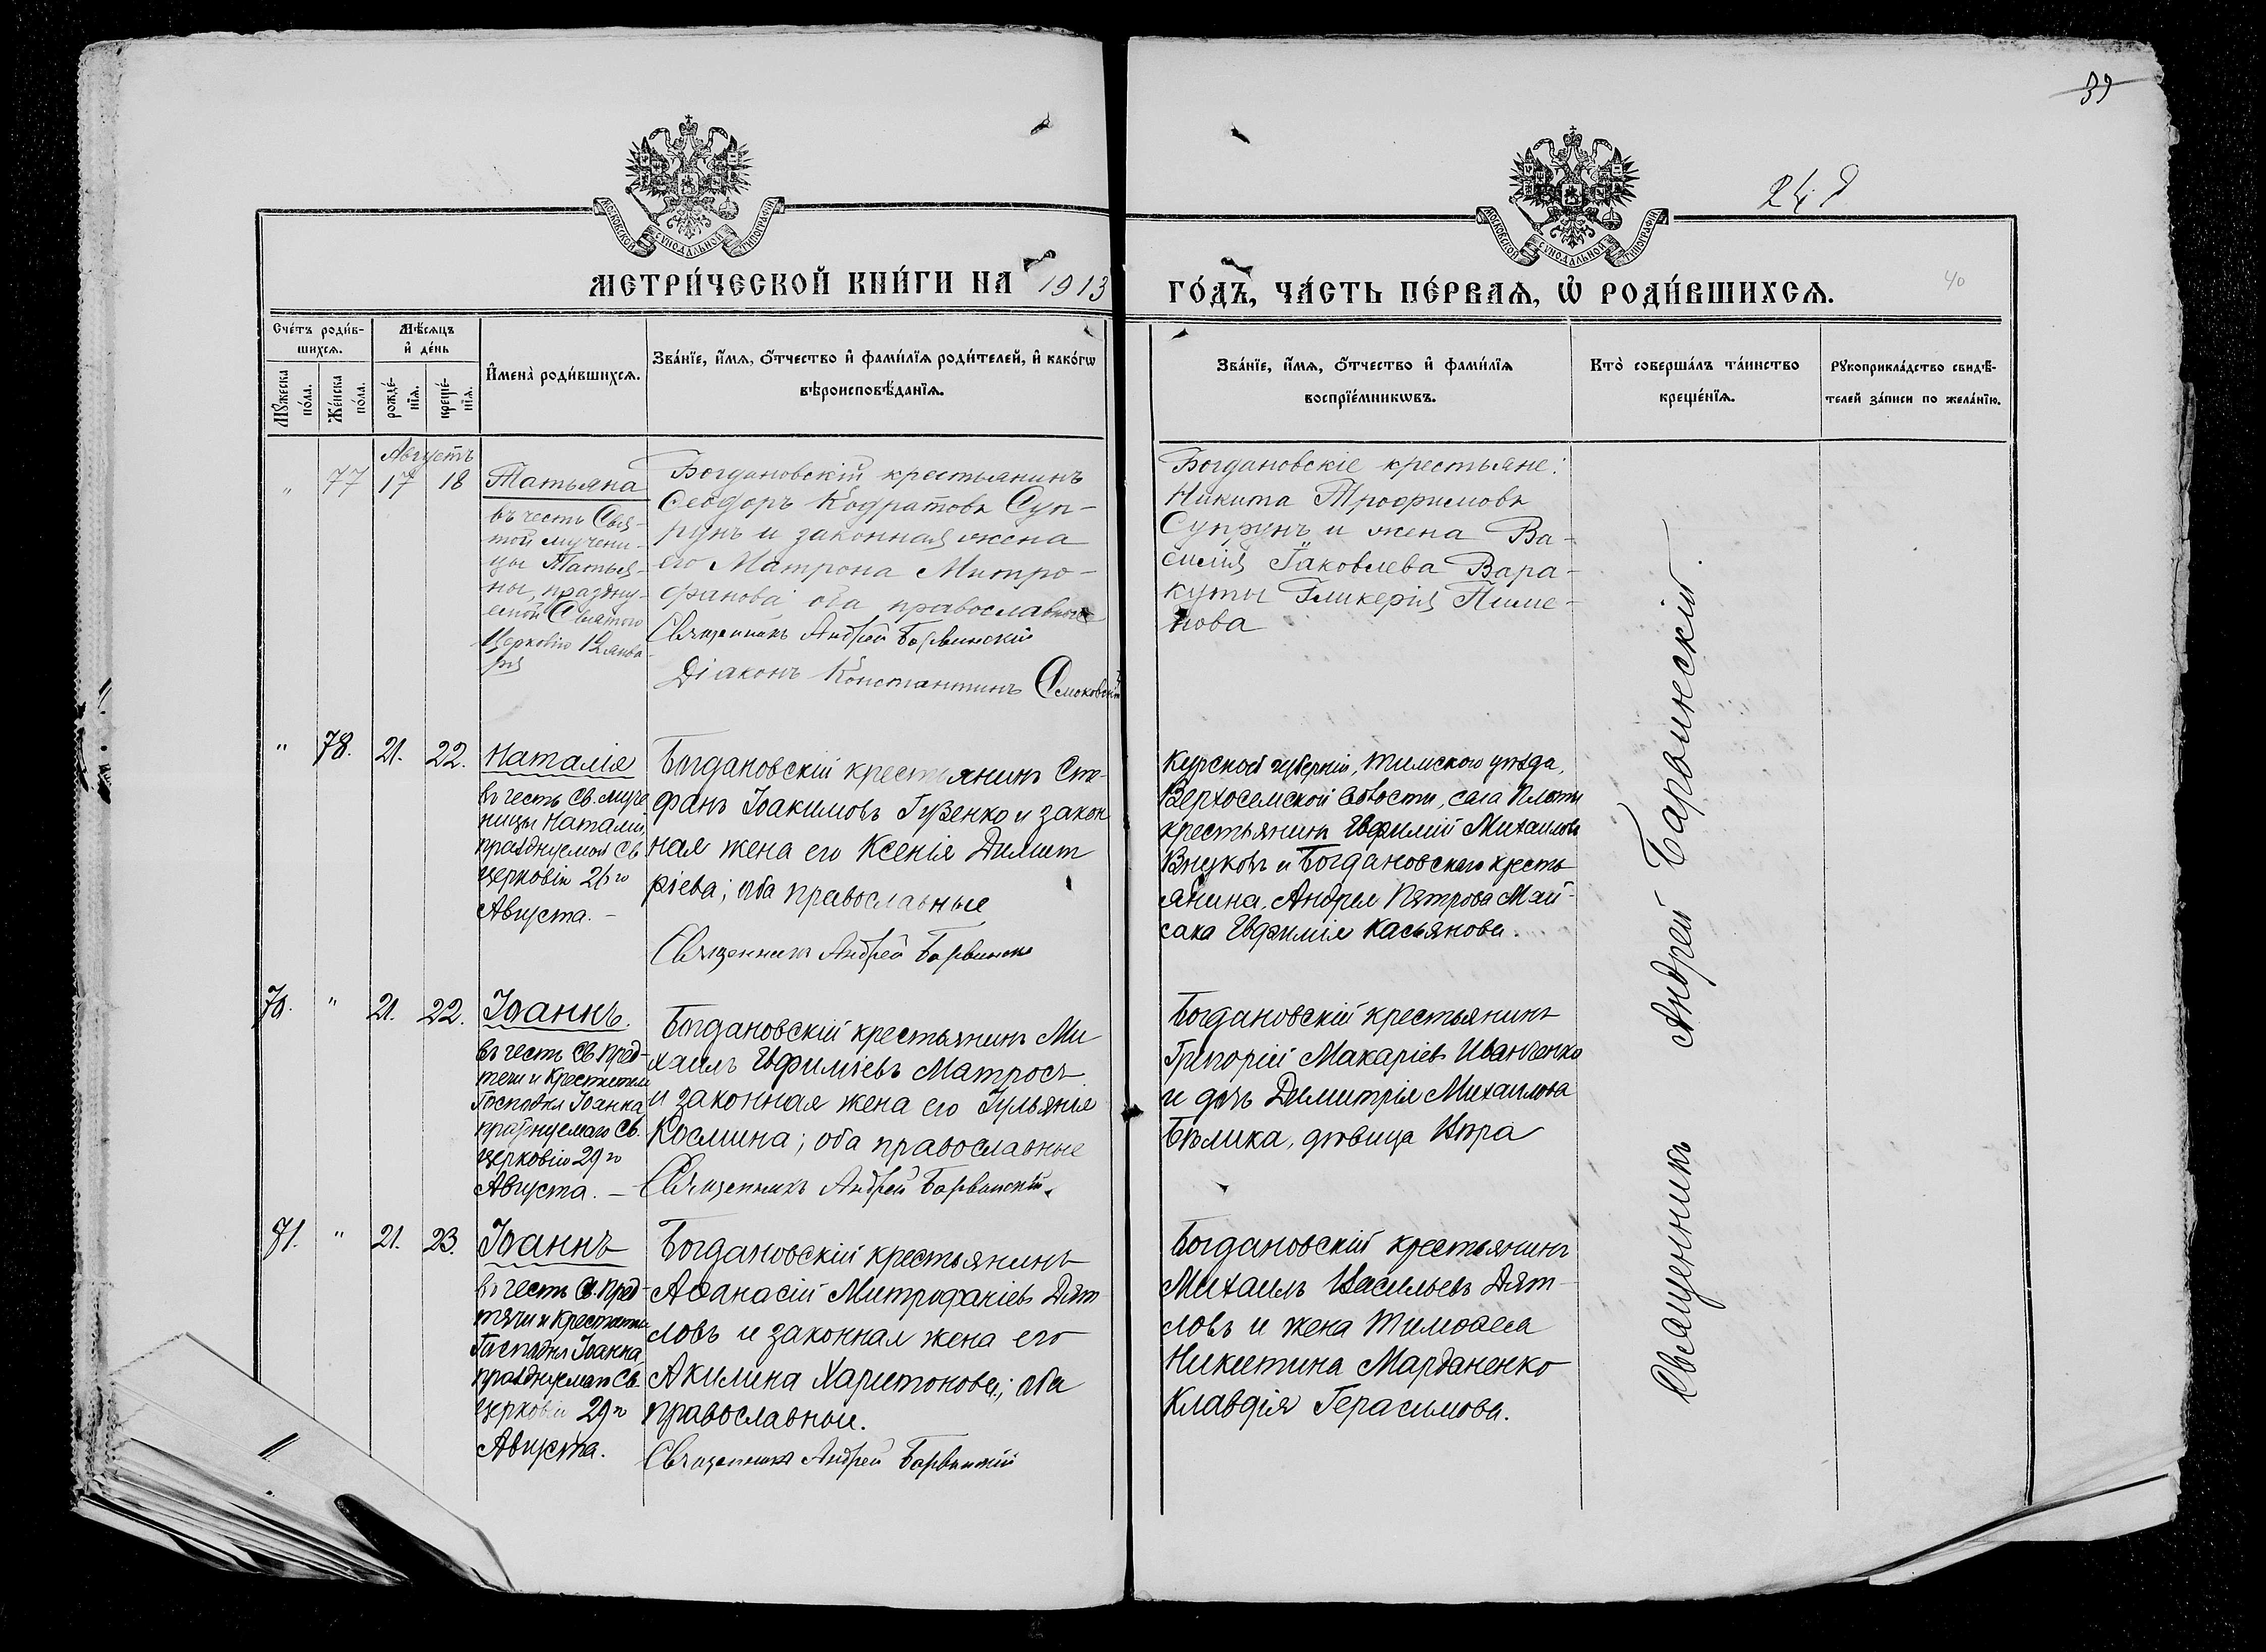 39
24 д
40
МОСКОВСКОЙ СѴНОДАЛЬНОЙ ТИПОГРАФІИ
МОСКОВСКОЙ СѴНОДАЛЬНОЙ ТИПОГРАФІИ
МЕТРИ́ЧЕСКОЙ КНИ́ГИ НА 1913
ГО́ДЪ, ЧА́СТЬ ПЕ́РВАѦ, Ѡ РОДИ́ВШИХСѦ.
Сче́тъ роди́в-
шихсѧ.
Мѣ́сѧцъ
и҆ де́нь
Мꙋ́жеска
по́ла.
Же́нска
по́ла.
рожде́-
нїѧ.
креще́-
нїѧ.
И҆мена̀ роди́вшихсѧ.
Зва́нїе, и҆́мѧ, ѻ҆́тчество и҆ фами́лїѧ роди́телей, и҆ како́гѡ
вѣроисповѣ́данїѧ.
Зва́нїе, и҆́мѧ, ѻ҆́тчество и҆ фами́лїѧ
воспрїе́мникѡвъ.
Кто̀ соверша́лъ та́инство
креще́нїѧ.
Рꙋкоприкла́дство свидѣ́-
телей за́писи по жела́нїю.
Августъ
" 77 17 18
Татьяна
въ честь Свя-
той мучени-
цы Татья-
ны, праздну-
емой Святою
Церковію 12 янва
ря
Богдановскій крестьянинъ
Ѳеодоръ Кодратовъ Суп-
рунъ и законная жена
его Матрона Митро-
фанова оба православные
Священникъ Андрей Барвинскій
Діаконъ Константинъ
Богдановскіе крестьяне:
Никита Трофимовъ
Супрунъ и жена Ва-
силія Іаковлева Вара-
куты Гликерія Пиме-
нова
" 78. 21. 22.
Наталія
въ честь Св. муче
ницы Наталіи,
празднуемой Св.
церковію 26го
Августа. –
Богдановскій крестьянинъ Сте-
фанъ Іоакимовъ Гузенко и закон
ная жена его Ксенія Димит
ріева; оба православные
Священникъ Андрей Барвинскій
Курской губерніи, Тимского уѣзда,
Верхосемской волости, села Плоты
крестьянинъ Евфимій Михаиловъ
Внуковъ и Богдановского кресть
янина, Андрея Петрова Мой-
сака Евфимія Касьянова.
70. " 21. 22.
Іоаннъ.
въ честь Св. Пред-
течи и Крестителя
Господня Іоанна
празднуемаго Св.
церковію 29го
Августа. –
Богдановскій крестьянинъ Ми
хаилъ Евфиміевъ Матросъ
и законная жена его Іульянія
Космина; оба православные
Священникъ Андрей Барвинскій.
Богдановскій крестьянинъ
Григорій Макаріевъ Иванченко
и дочь Димитрія Михаилова
Бѣлика, дѣвица Вѣра
71. " 21. 23.
Іоаннъ
въ честь Св. Пред-
течи и Крестителя
Господня Іоанна,
празднуемаго Св.
церковію 29го
Августа.
Богдановскій крестьянинъ
Аѳанасій Митрофаніевъ Дят-
ловъ и законная жена его
Акилина Харитонова; оба
православные.
Священникъ Андрей Барвинскій
Богдановскій крестьянинъ
Михаилъ Васильевъ Дят-
ловъ и жена Тимоѳея
Никитина Марданенко
Клавдія Герасимова.
Священникъ Андрей Барвинскій.